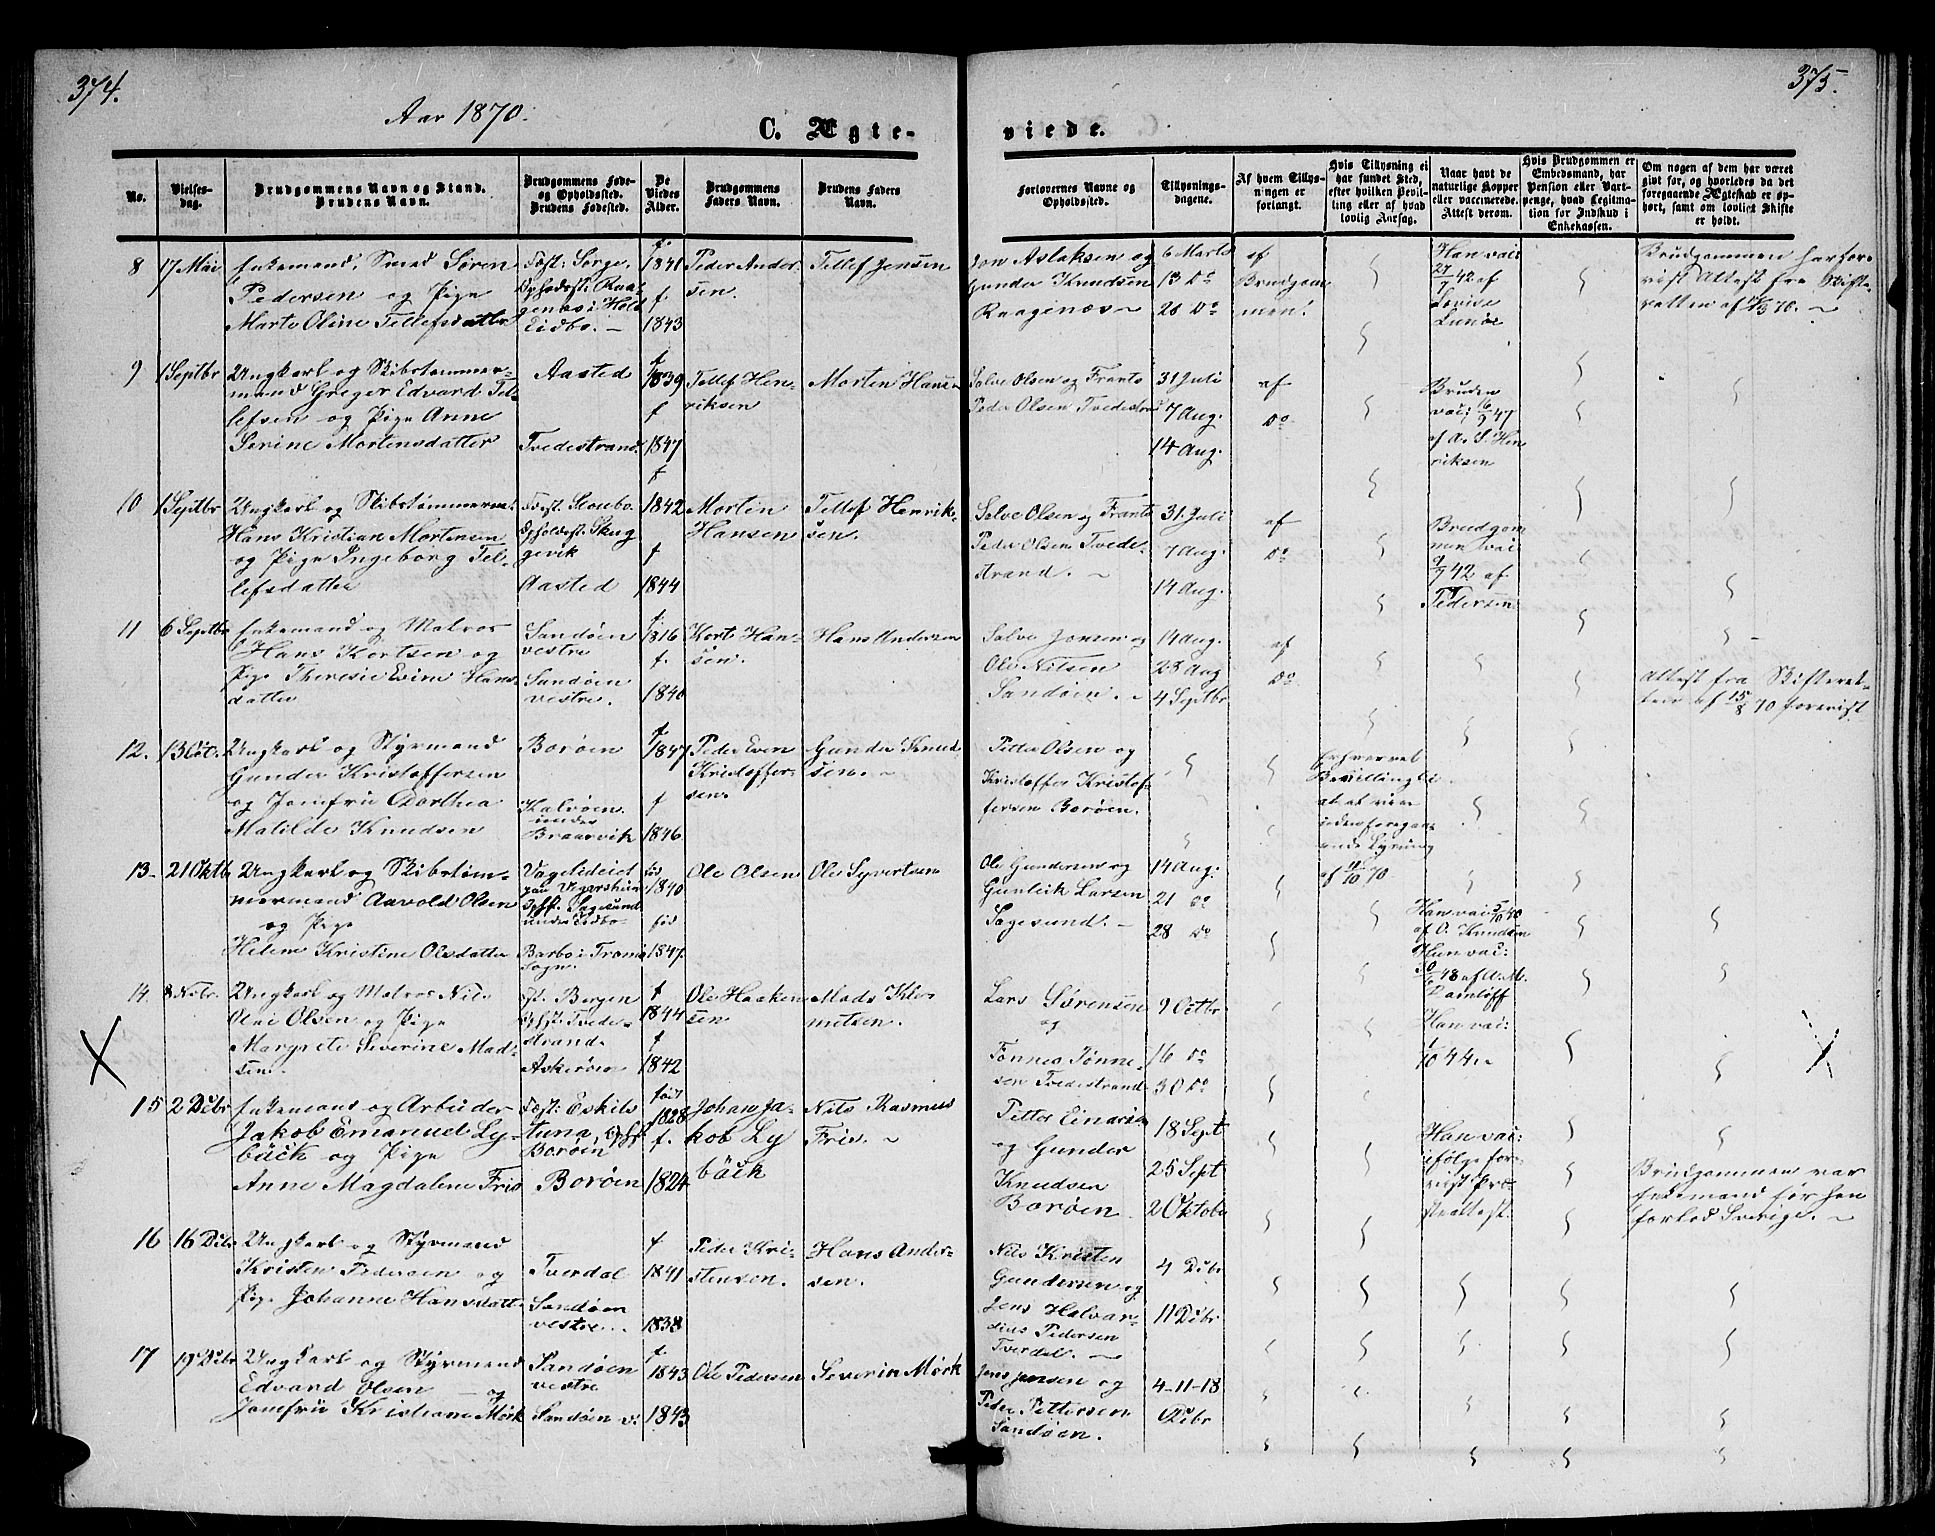 374.
375.
Aar 1870.
C. Ægte-
viede.
No.
Vielses-
dag.
Brudgommens Navn og Stand.
Brudens Navn.
Brudgommens Føde-
og Opholdssted.
Brudens Fødested.
De
Viedes
Alder.
Brudgommens
Faders Navn.
Brudens Faders
Navn.
Forlovernes Navne og
Opholdssted.
Tillysnings-
dagene.
Af hvem Tillys-
ningen er
forlangt.
Hvis Tillysning ei
har fundet Sted,
efter hvilken Bevil-
ling eller af hvad
lovlig Aarsag.
Naar havt de
naturlige Kopper
eller vaccinerede.
Attest derom.
Hvis Brudgommen er
Embedsmand, har
Pension eller Vart-
penge, hvad Legitma-
tion for Indskud i
Enkekassen.
Om nogen af dem har været
givt før, og hvorledes da det
foregaaende Ægteskab er op-
hørt, samt om lovligt Skifte
er holdt.
8 17 Mai
Enkemand, Smed Søren
Pedersen og Pige
Marte Oline Tellefsdatter
Eidbo. -
f. 1841
f. 1843
Peder Ander
sen.
Tellef Jensen
Jon Aslaksen og
Gunder Knudsen
Raagenæs
6 Marts
13 Do
20 Do
af
Brudgom
men!
Han vac:
27/7 42 af
Lovise
Lunøe
Brudgommen har fore
vist Attest fra Skifte
retten af
9 1 Septbr
Ungkarl og Skibstømmer-
mand Greger Edvard Tel-
lefsen og Pige Anne
Serine Mortensdatter
Aasted
Tvedestrand
f 1839
f 1847
Tellef Hen-
riksen
Morten Hansen
Salve Olsen og Frants
Peder Olsen Tvedestrand
31 Juli
7 Aug.
14 Aug.
af
Do
Bruden
vac: 16/9 47
af A. S. Hen
riksen
10 1 Septbr
Ungkarl og Skibstømmerm.
Hans Kristian Mortensen
og Pige Ingeborg Tel-
lefsdatter
Aasted
f 1842
f 1844
Morten
Hansen
Tellef Henrik-
sen.
Salve Olsen og Frants
Peder Olsen Tvede-
strand. -
31 Juli
7 Aug.
14 Aug.
af
Do
Brudgom
men vac
9/7 42 af
Pedersen
11 6 Septbr
Enkemand og Matros
Hans Kortsen og
Pige Theresie Evine Hans-
datter
Sandøen
vestre
Sandøen
vestre.
f. 1816
f. 1840
Kort Han-
sen.
Hans Andersen
Salve Jensen og
Ole Nilsen
Sandøen. -
14 Aug.
28 Aug
4 Septbr
af
Do
Attest fra Skifteret-
ten af 15/8 70 forevist
12. 13 Oct.
Ungkarl og Styrmand
Gunder Kristoffersen
og Jomfru Dorthea
Matilde Knudsen
Borøen
Kalvøen
under
Braarvik
f 1847
f 1846
Peder Even
Kristoffer-
sen.
Gunder Knud
sen. -
Petter Olsen og
Kristoffer Kristof-
fersen Borøen.
Erhvervet
Bevilling
at vies
uden foregaa-
ende Lysning
af 11/10 70
13. 21 Oktb
Ungkarl og Skibstøm-
mermand Aavold Olsen
og Pige
Helene Kristine Olsdatter
Barbo i Tromø
Sogn.
fød 1840
fød 1847
Ole Olsen
Ole Syvertsen
Ole Gundersen og
Gunleik Larsen
Sagesund. -
14 Aug:
21 Do
28 Do
Han vac: 5/10 40
af O. Knudsen
Hun vac:
Damløff
14. 8 Nvbr.
Ungkarl og Matros Nils
Olai Olsen og Pige
Margrete Severine Mad-
sen.
Fst. Bergen
Opst. Tvede-
strand
Askerøen
f 1844
f 1842
Ole Haaken
sen
Mads Kle
metsen.
Lars Sørensen
og
Tønnes Tønne-
sen Tvedestrand
9 Octbr
16 Do
30 Do
Han vac:
1/10 44
15 2 Debr
Enkemand og Arbeider
Jakob Emanuel Ly-
bäck og Pige
Anne Magdalene Friis
Fœst: Eskils
tuna,
Borøen
Borøen
født 1828
f. 1824
Johan Ja-
kob Ly
bäck
Nils Rasmus
Friis. -
Petter Einarsen
og Gunder
Knudsen
Borøen
18 Sept
25 Sept
2 Oktober
Han vac:
ifølge fore
vist Præ-
steattest.
Brudgommen var
Enkemand før han
forlod Sverige. -
16 16 Debr
Ungkarl og Styrmand
Kristen Pedersen og
Pige Johanne Hansdatter
Tverdal
Sandøen
vestre.
f 1841
1838
Peder Kri-
stensen.
Hans Ander-
sen.
Nils Kristen
Gundersen og
Jens Halvar-
dius Pedersen
Tverdal. -
4 Debr
11 Debr
17 19 Debr
Ungkarl og Styrmand
Edvard Olsen - og
Jomfru Kristiane Mørk
Sandøen
vestre
Sandøen v:
f 1843
1843
Ole Pedersen
Severin Mørk
Jens Jensen og
Peder Pettersen
Sandøen.
4-11-18
Debr